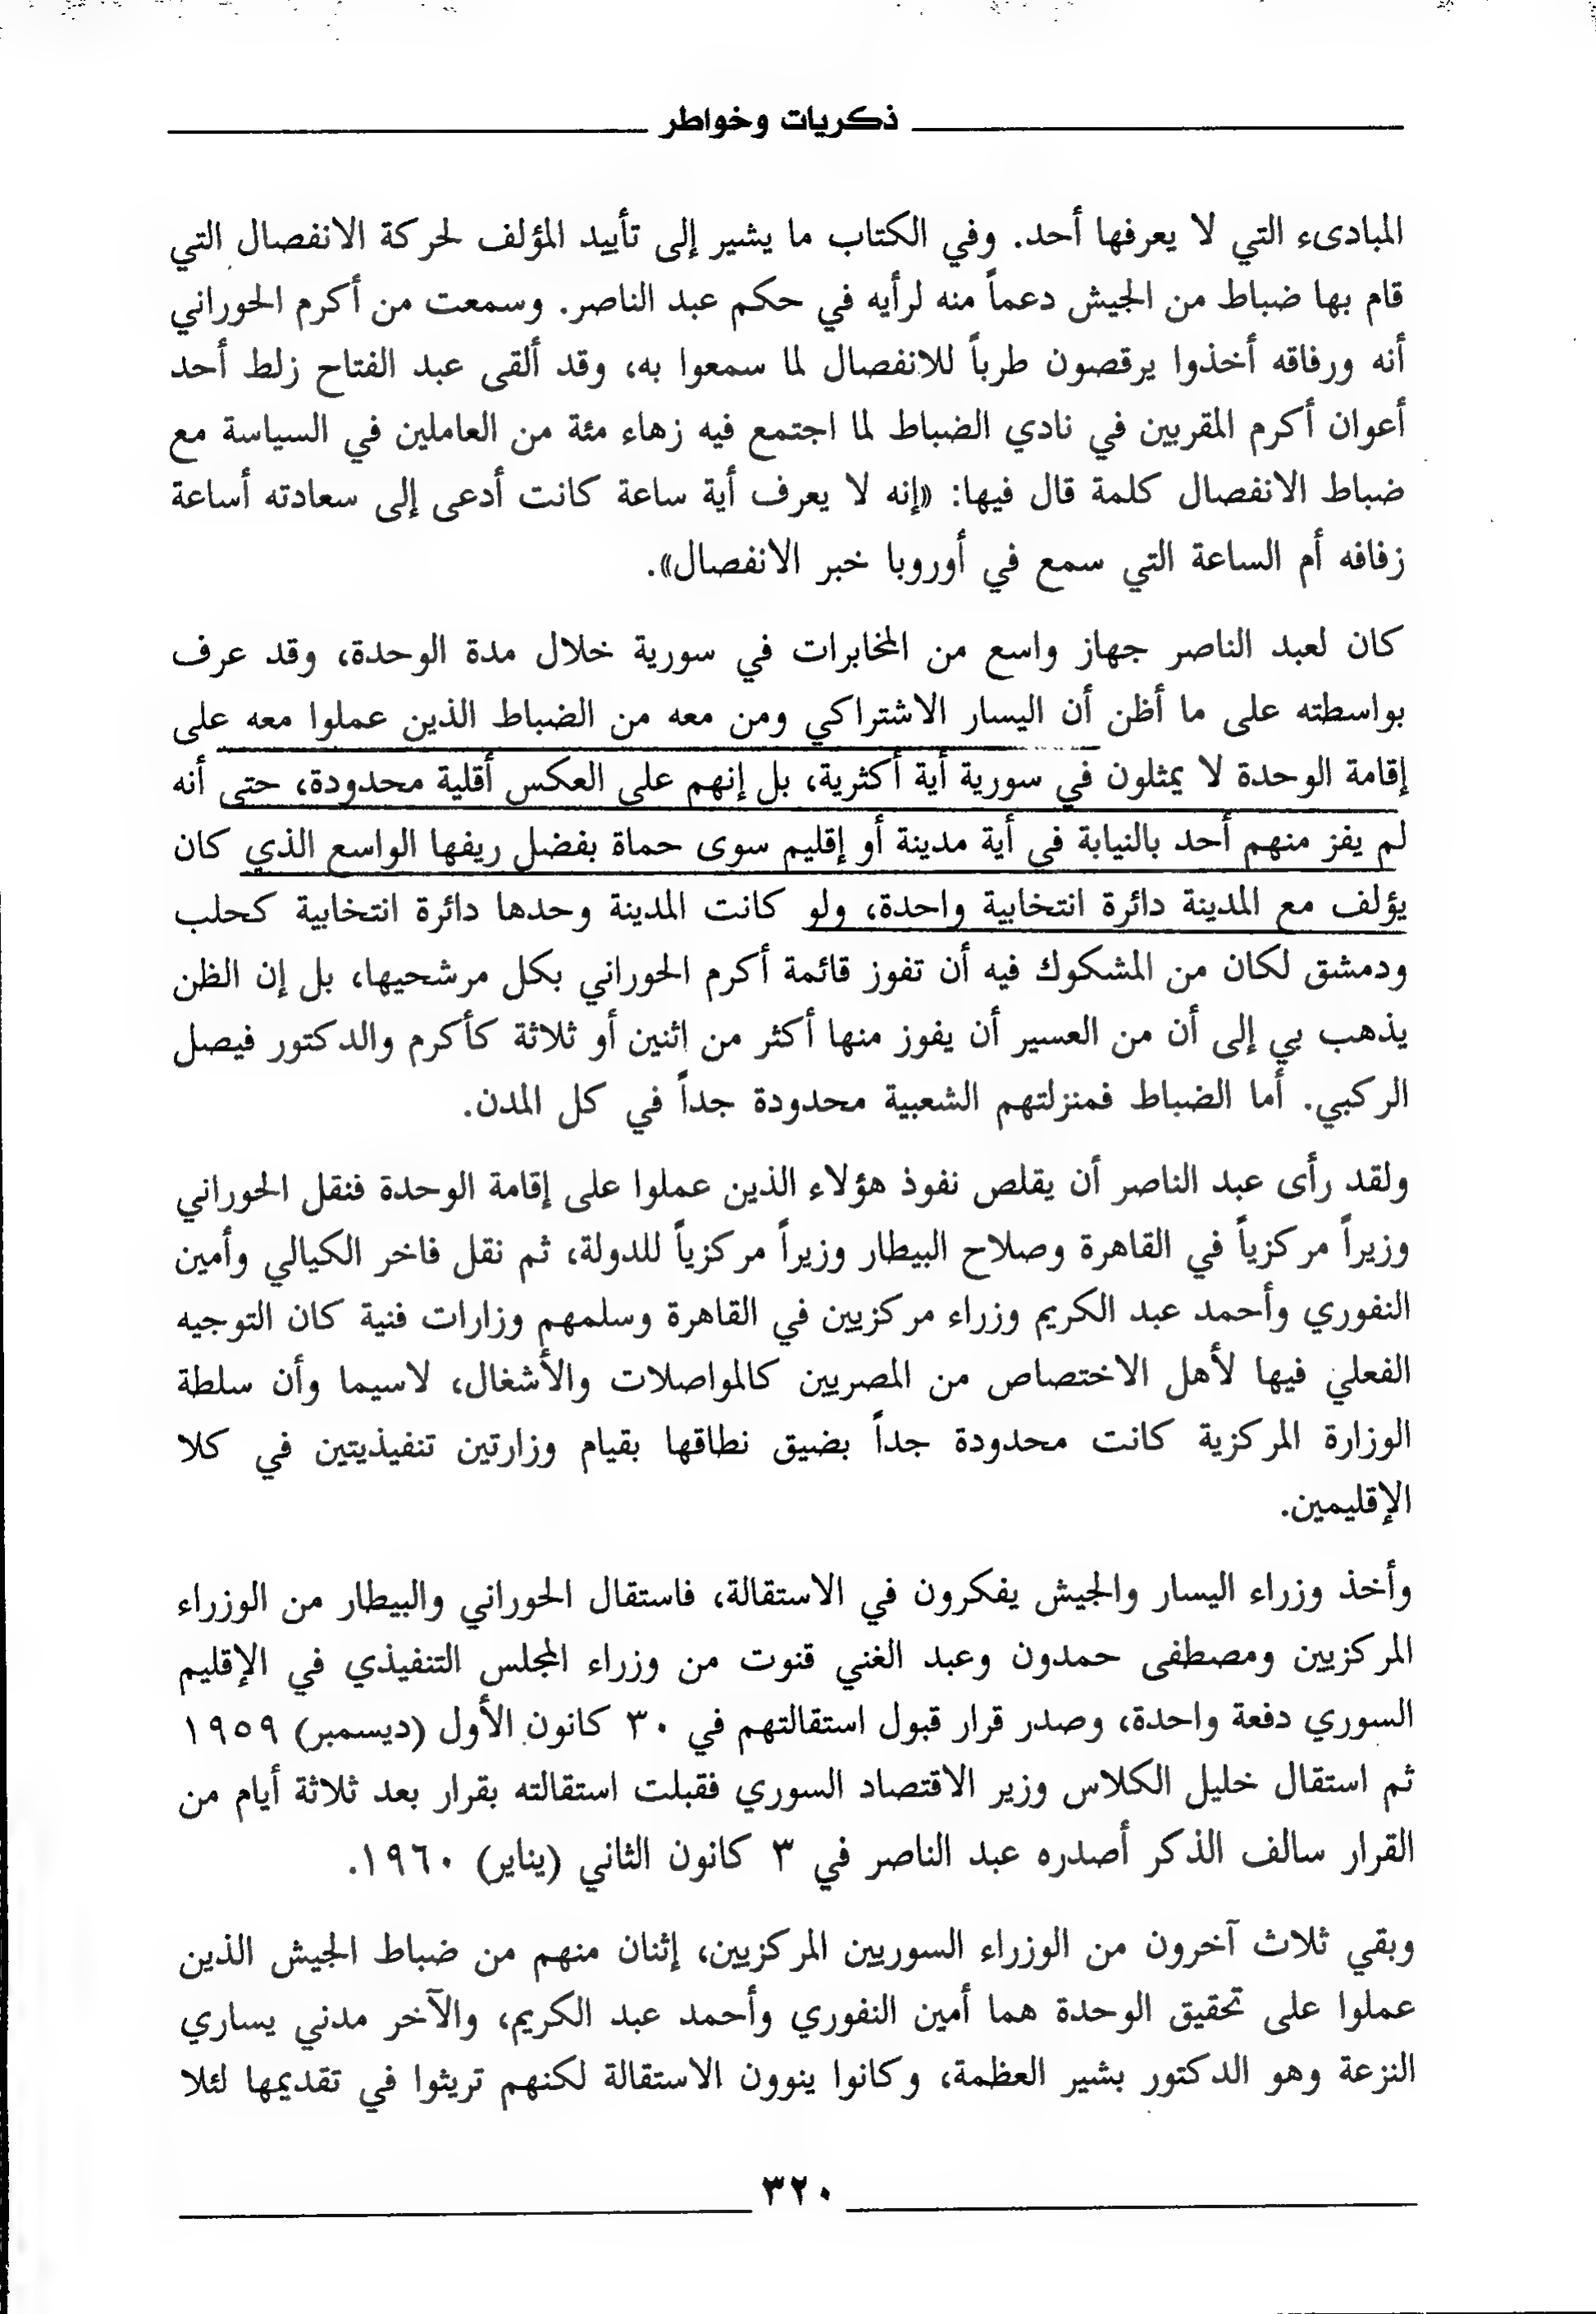 ذكريات وخواطر
المبادىء التي لا يعرفها أحد. وفي الكتاب ما يشير إلى تأييد المؤلف لحركة الانفصال التي
قام بها ضباط من الجيش دعماً منه لرأيه في حكم عبد الناصر. وسمعت من أكرم الحوراني
أنه ورفاقه أخذوا يرقصون طرباً للانفصال لما سمعوا به، وقد ألقى عبد الفتاح زلط أحد
أعوان أكرم المقربين في نادي الضباط لما اجتمع فيه زهاء مئة من العاملين في السياسة مع
ضباط الانفصال كلمة قال فيها: «إنه لا يعرف أية ساعة كانت أدعى إلى سعادته أساعة
زفافه أم الساعة التي سمع في أوروبا خبر الانفصال».
كان لعبد الناصر جهاز واسع من المخابرات في سورية خلال مدة الوحدة، وقد عرف
بواسطته على ما أظن أن اليسار الاشتراكي ومن معه من الضباط الذين عملوا معه على
إقامة الوحدة لا يمثلون في سورية أية أكثرية، بل إنهم على العكس أقلية محدودة، حتى أنه
لم يفز منهم أحد بالنيابة في أية مدينة أو إقليم سوى حماة بفضل ريفها الواسع الذي كان
يؤلف مع المدينة دائرة انتخابية واحدة، ولو كانت المدينة وحدها دائرة انتخابية كحلب
ودمشق لكان من المشكوك فيه أن تفوز قائمة أكرم الحوراني بكل مرشحيها، بل إن الظن
يذهب بي إلى أن من العسير أن يفوز منها أكثر من اثنين أو ثلاثة كأكرم والدكتور فيصل
الركبي. أما الضباط فمنزلتهم الشعبية محدودة جداً في كل المدن.
ولقد رأى عبد الناصر أن يقلص نفوذ هؤلاء الذين عملوا على إقامة الوحدة فنقل الحوراني
وزيراً مركزياً في القاهرة وصلاح البيطار وزيراً مركزياً للدولة، ثم نقل فاخر الكيالي وأمين
النفوري وأحمد عبد الكريم وزراء مركزيين في القاهرة وسلمهم وزارات فنية كان التوجيه
الفعلي فيها لأهل الاختصاص من المصريين كالمواصلات والأشغال، لاسيما وأن سلطة
الوزارة المركزية كانت محدودة جداً بضيق نطاقها بقيام وزارتين تنفيذيتين في كلا
الإقليمين.
وأخذ وزراء اليسار والجيش يفكرون في الاستقالة، فاستقال الحوراني والبيطار من الوزراء
المركزيين ومصطفى حمدون وعبد الغني قنوت من وزراء المجلس التنفيذي في الإقليم
السوري دفعة واحدة، وصدر قرار قبول استقالتهم في ٣٠ كانون الأول (ديسمبر) ١٩٥٩
ثم استقال خليل الكلاس وزير الاقتصاد السوري فقبلت استقالته بقرار بعد ثلاثة أيام من
القرار سالف الذكر أصدره عبد الناصر في ٣ كانون الثاني (يناير) ١٩٦٠.
وبقي ثلاث آخرون من الوزراء السوريين المركزيين، إثنان منهم من ضباط الجيش الذين
عملوا على تحقيق الوحدة هما أمين النفوري وأحمد عبد الكريم، والآخر مدني يساري
النزعة وهو الدكتور بشير العظمة، وكانوا ينوون الاستقالة لكنهم تريثوا في تقديمها لئلا
٣٢٠